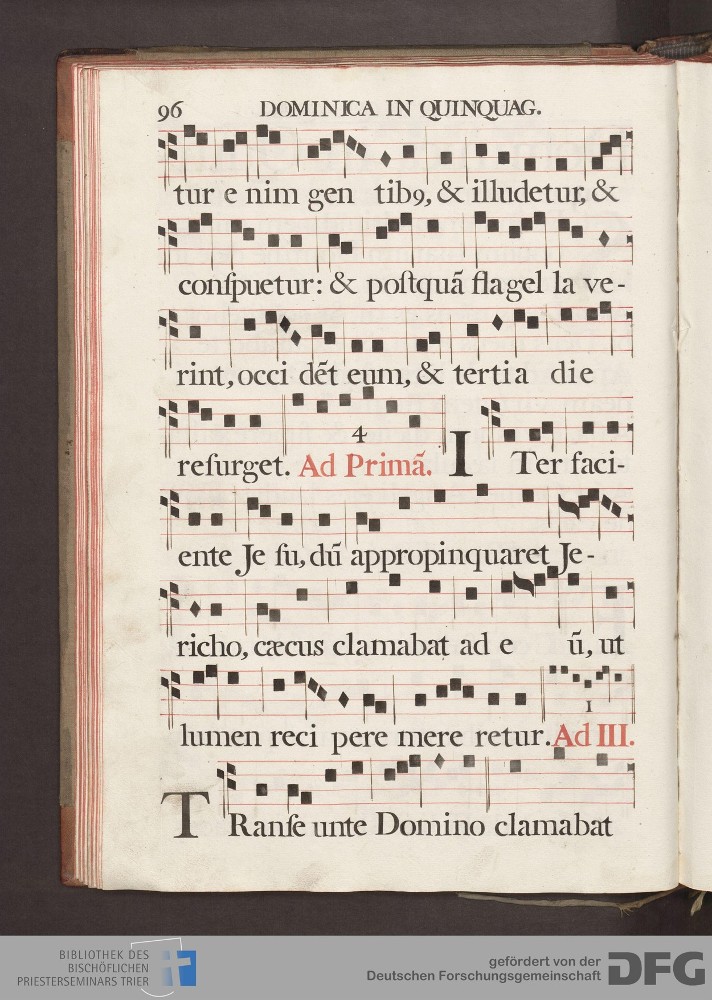 96 DOMINICA IN QUINQUAG.
tur e nim gen tib9, & illudetur, &
conſpuetur: & poſtquã flagel la ve-
rint, occi dẽt eum, & tertia die
4
reſurget. Ad Primã. I Ter faci-
ente Je ſu, dũ appropinquaret Je-
richo, cæcus clamabat ad e ũ, ut
1
lumen reci pere mere retur. Ad III.
T Ranſe unte Domino clamabat
BIBLIOTHEK DES
BISCHÖFLICHEN
PRIESTERSEMINARS TRIER
gefördert von der
Deutschen Forschungsgemeinschaft DFG